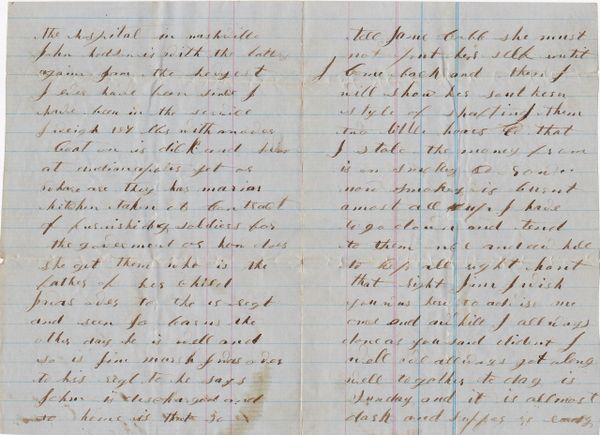 the hospital in nashville
John is with the battery
again I am the heavyest
I ever have been since I
have been in the service
I weigh 184 lbs with an over
Coat on is dick and
at indianapolis yet or
where are they has maria
kitchen taken a Contract
of furnishing soldiers for
the goverment or how does
she get them who is the
father of her child
I was over to the regt
and seen the
other day he is well and
so is Jim marsh I was over
to his regt to he says
John is discharged and
to home is that so
tell Jane Cobb she must
not her silk until
I Come back and then I
will show her southern
style of them
two bitle hours
I stole the money from
is on
now smokey is burnt
amost all up I have
to go down and tend
to them
to all right
that right Jim I wish
you was here to me
once and I allways
done as you said didnt I
well we allways got along
well together to day is
Sunday and it is allmost
dark and supper is ready